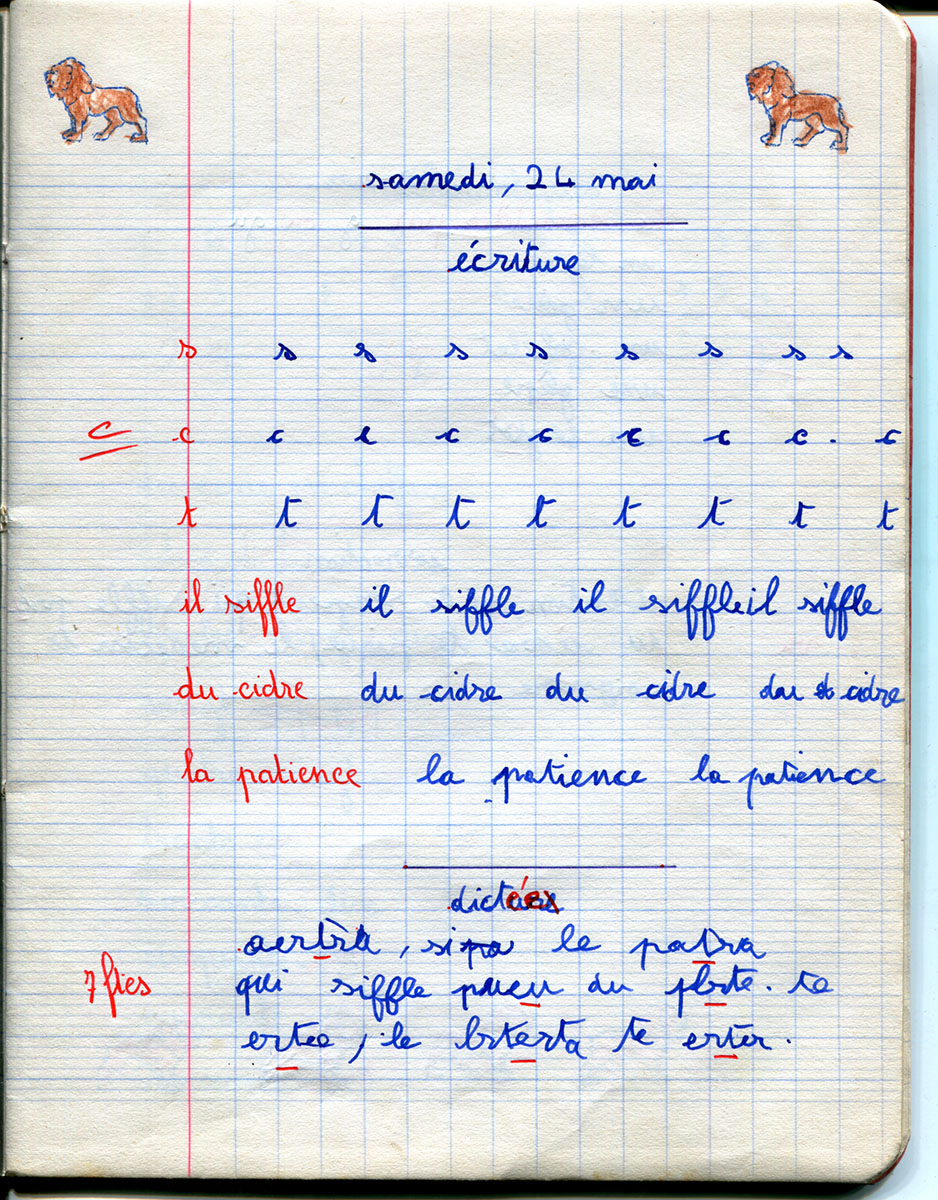 samedi, 24 mai
écriture
s s s s s s s s s
c c c c c c c c c . c
t t t t t t t t t
il siffle il siffle il siffle il siffle
du cidre du cidre du cidre du cidre
la patience la patience la patience
dictée
, si le patra
7 ftes qui siffle du te
ertee, le te erter.